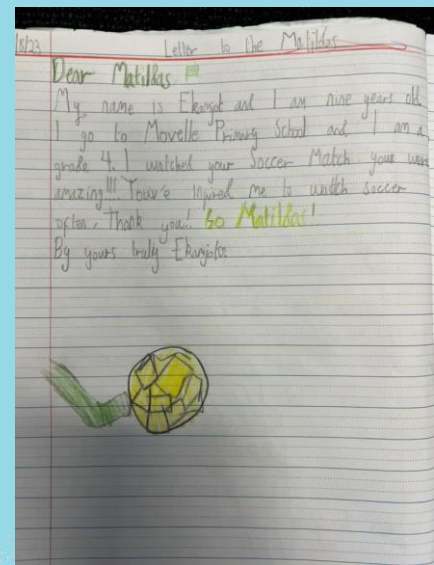 8/23
Letter to the Matildas
Dear Matildas
My name is Ekamjot and I am nine years old
I go to Movelle Primary School and, I am a
grade 4. I watched your Soccer Match your were
amazing!!! Touv'e Injired me to watch soccer
often, Thank you! Go Matildas!
By yours truly Ekamjot